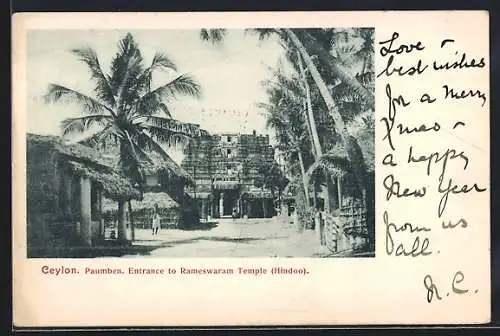 Love ~
best wishes
for a Merry
Xmas ~
a happy
New Year
from us
all.
N. C.
Ceylon. Paumben. Entrance to Rameswaram Temple (Hindoo).